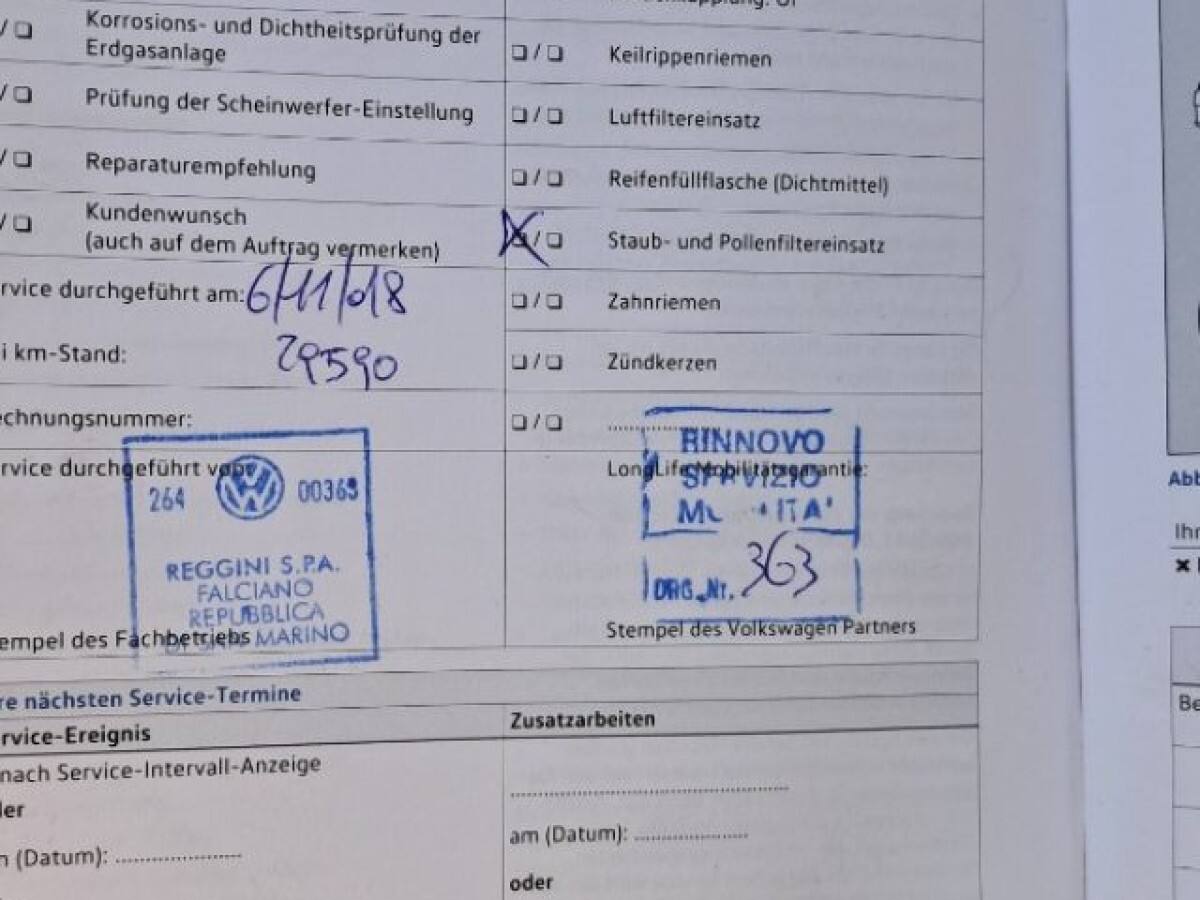 Korrosions- und Dichtheitsprüfung der
Erdgasanlage
Prüfung der Scheinwerfer-Einstellung
Reparaturempfehlung
Kundenwunsch
(auch auf dem Auftrag vermerken)
rvice durchgeführt am: 6/11/018
i km-Stand: 29590
echnungsnummer:
rvice durchgeführt von:
264 00363
REGGINI S.P.A.
FALCIANO
REPUBBLICA
DI SAN MARINO
empel des Fachbetriebs
Keilrippenriemen
Luftfiltereinsatz
Reifenfüllflasche (Dichtmittel)
Staub- und Pollenfiltereinsatz
Zahnriemen
Zündkerzen
LongLife Mobilitätsgarantie:
RINNOVO
SERVIZIO
ORG. Nr. 363
Stempel des Volkswagen Partners
re nächsten Service-Termine
rvice-Ereignis
nach Service-Intervall-Anzeige
ler
n (Datum): ....................
Zusatzarbeiten
am (Datum): ....................
oder
Abb
Ihr
Be